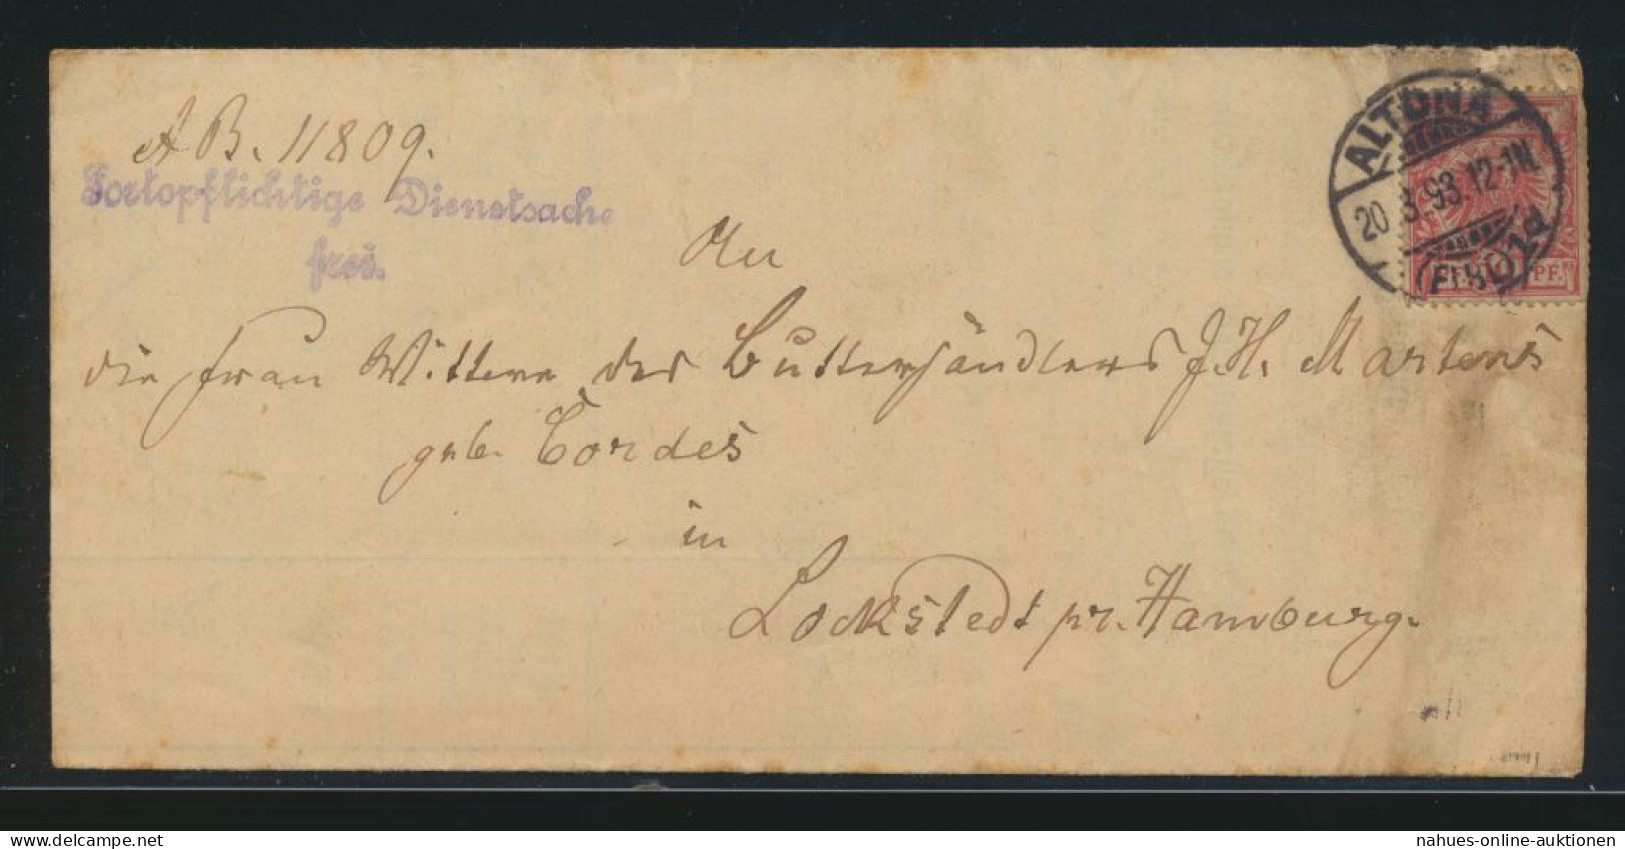 AB. 11809.
Portopflichtige Dienstsache
frei.
An
die Frau Wittwe des Butterhändlers J. H. Martens
geb. Cordes
in
Lockstedt pr. Hamburg.
ALTONA
20.3.93.12-1N.
(ELBE) 1d
PF.
nahues-online-auktionen